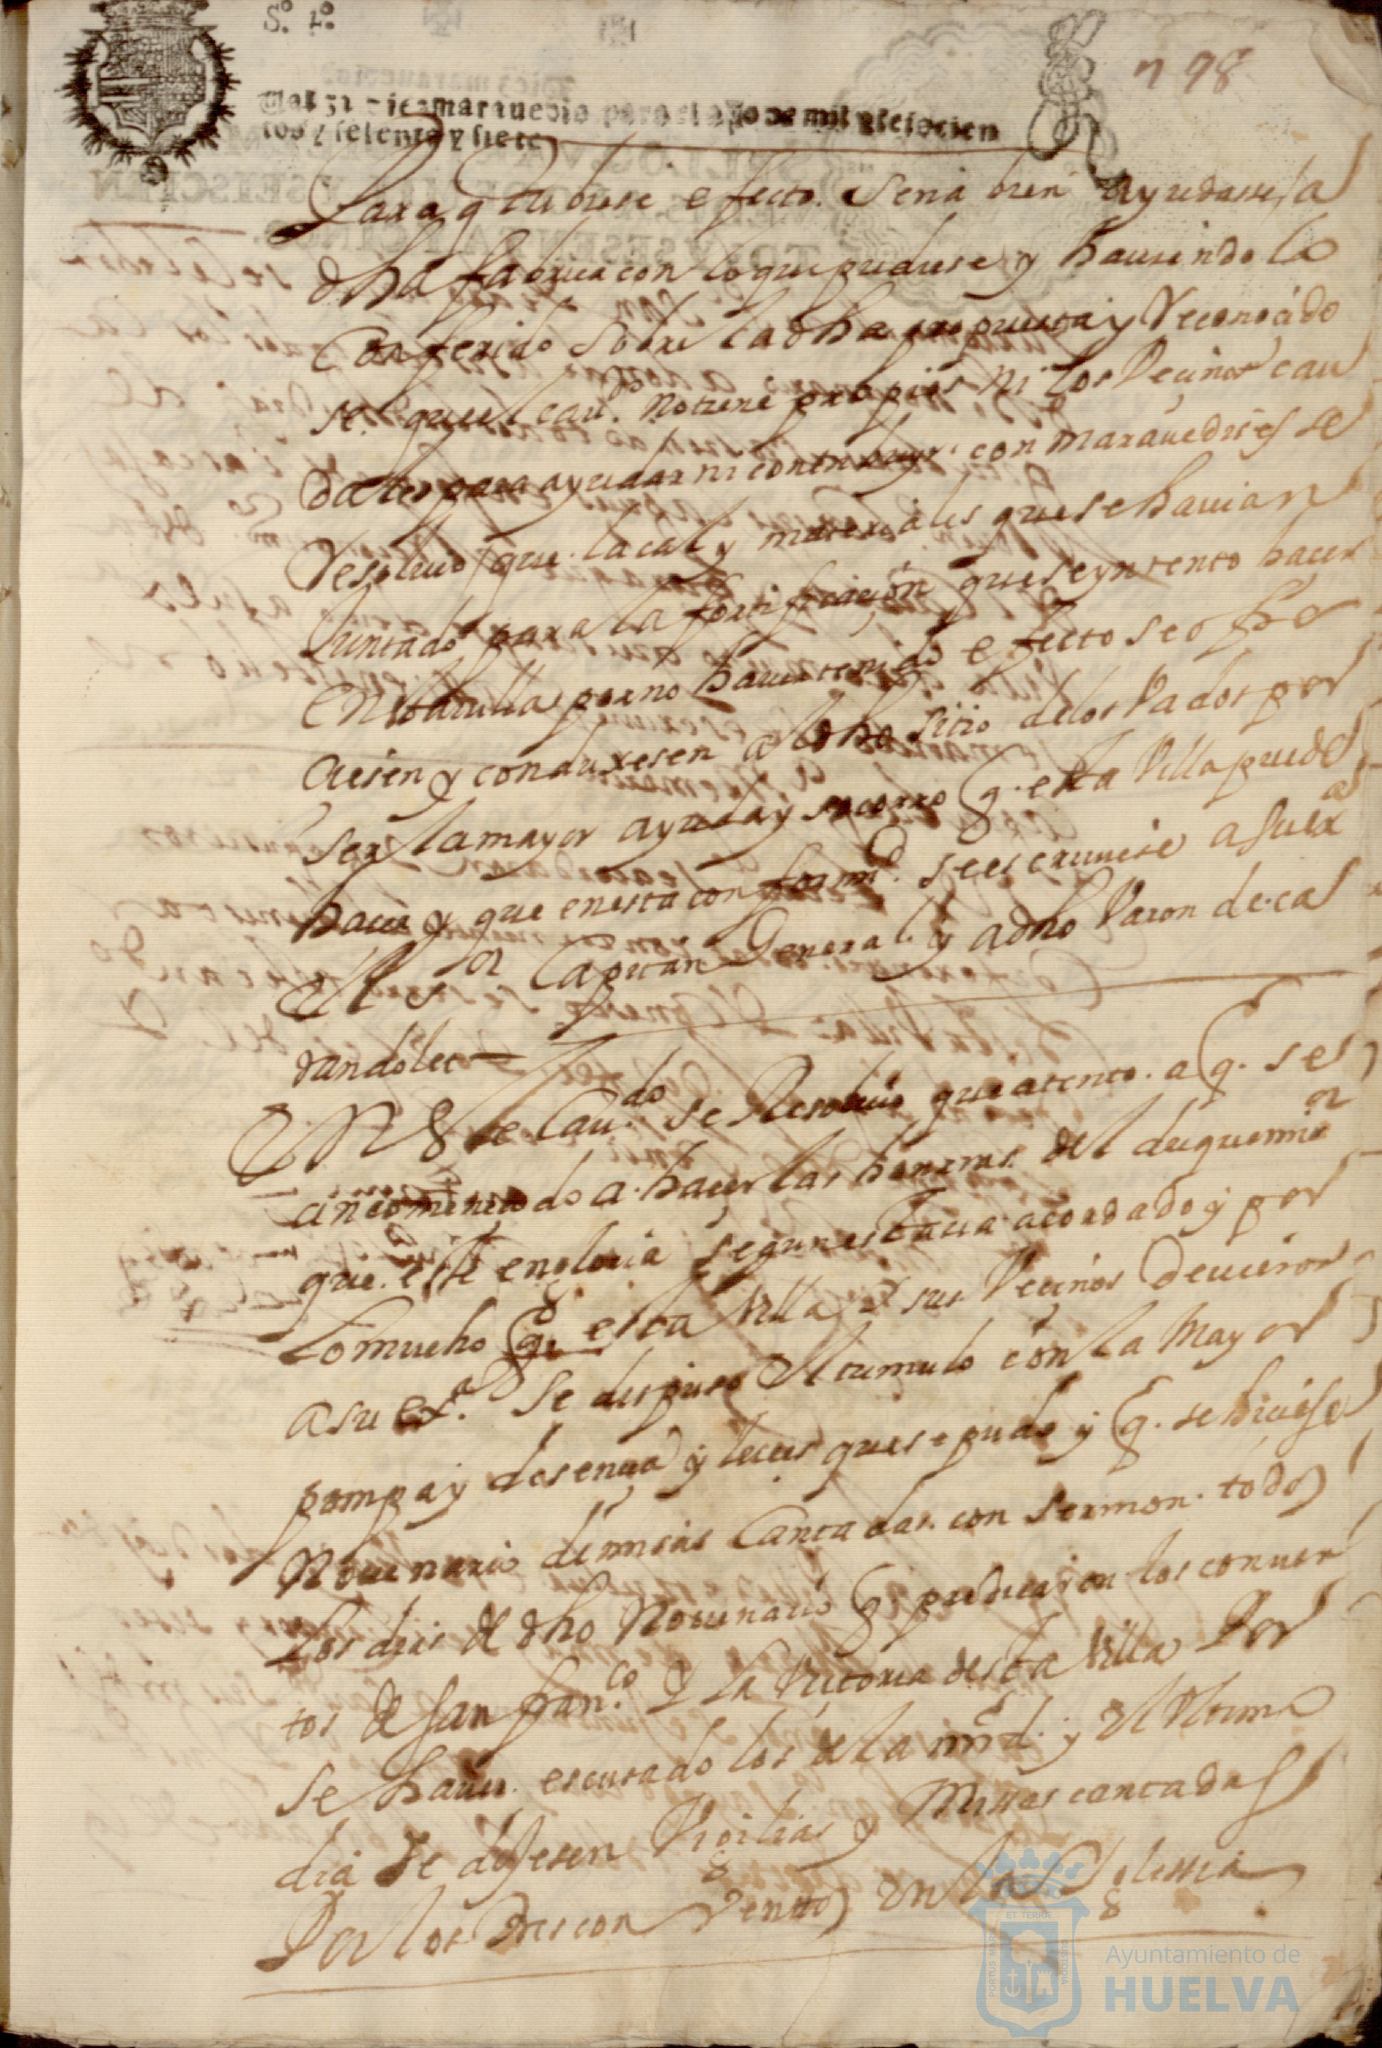 So. 4o.
n 98
diez maravedis para el año de mil y seiscien
tos y setenta y siete
Para q tubiese efecto. Seria bien ayudasse, a
dha fabrica con lo que pudiese y haviendo la
Conferido sobre la dha propuesta y Reconocido
se. que el cau.do no tiene propios ni los Vecinos cau
dales para ayudar ni contribuyr. con maravedises se
Resolvio que. la cal y materiales que se havian
Juntado para la fortificacion que se yntento hacer
en esta villa por no haver tenido efecto se ofre
ciesen y conduxesen al dho sitio de los Vados por
ser la mayor ayuda y socorro q. esta Villa puede
hacer y que en esta conformd. se escriviese a su exa
el Sor Capitan General. y a dho Varon de. cas
tandolet
En Este Cau.do se Resolvio que atento. a q. se
a encomencado a. hacer las honrras del duque mi sor
que. esté en gloria segun estava acordado y por
lo mucho q. esta Villa y sus Vecinos devieron
a su exa. se dispuso el tumulo con la Mayor
pompa y desencia y luces que se pudo y q. se hiciese
Novenario de missas Cantadas. con sermon. todos
los dias de dho Novenario q. predicasen los conven
tos de san fran.co y la Victoria desta Villa Por
se haver. escusado los de la mrd. y el Ultimo
dia se dixesen Vigilias y Missas cantadas
Por los tres conventos en la Yglessia
Ayuntamiento de
HUELVA